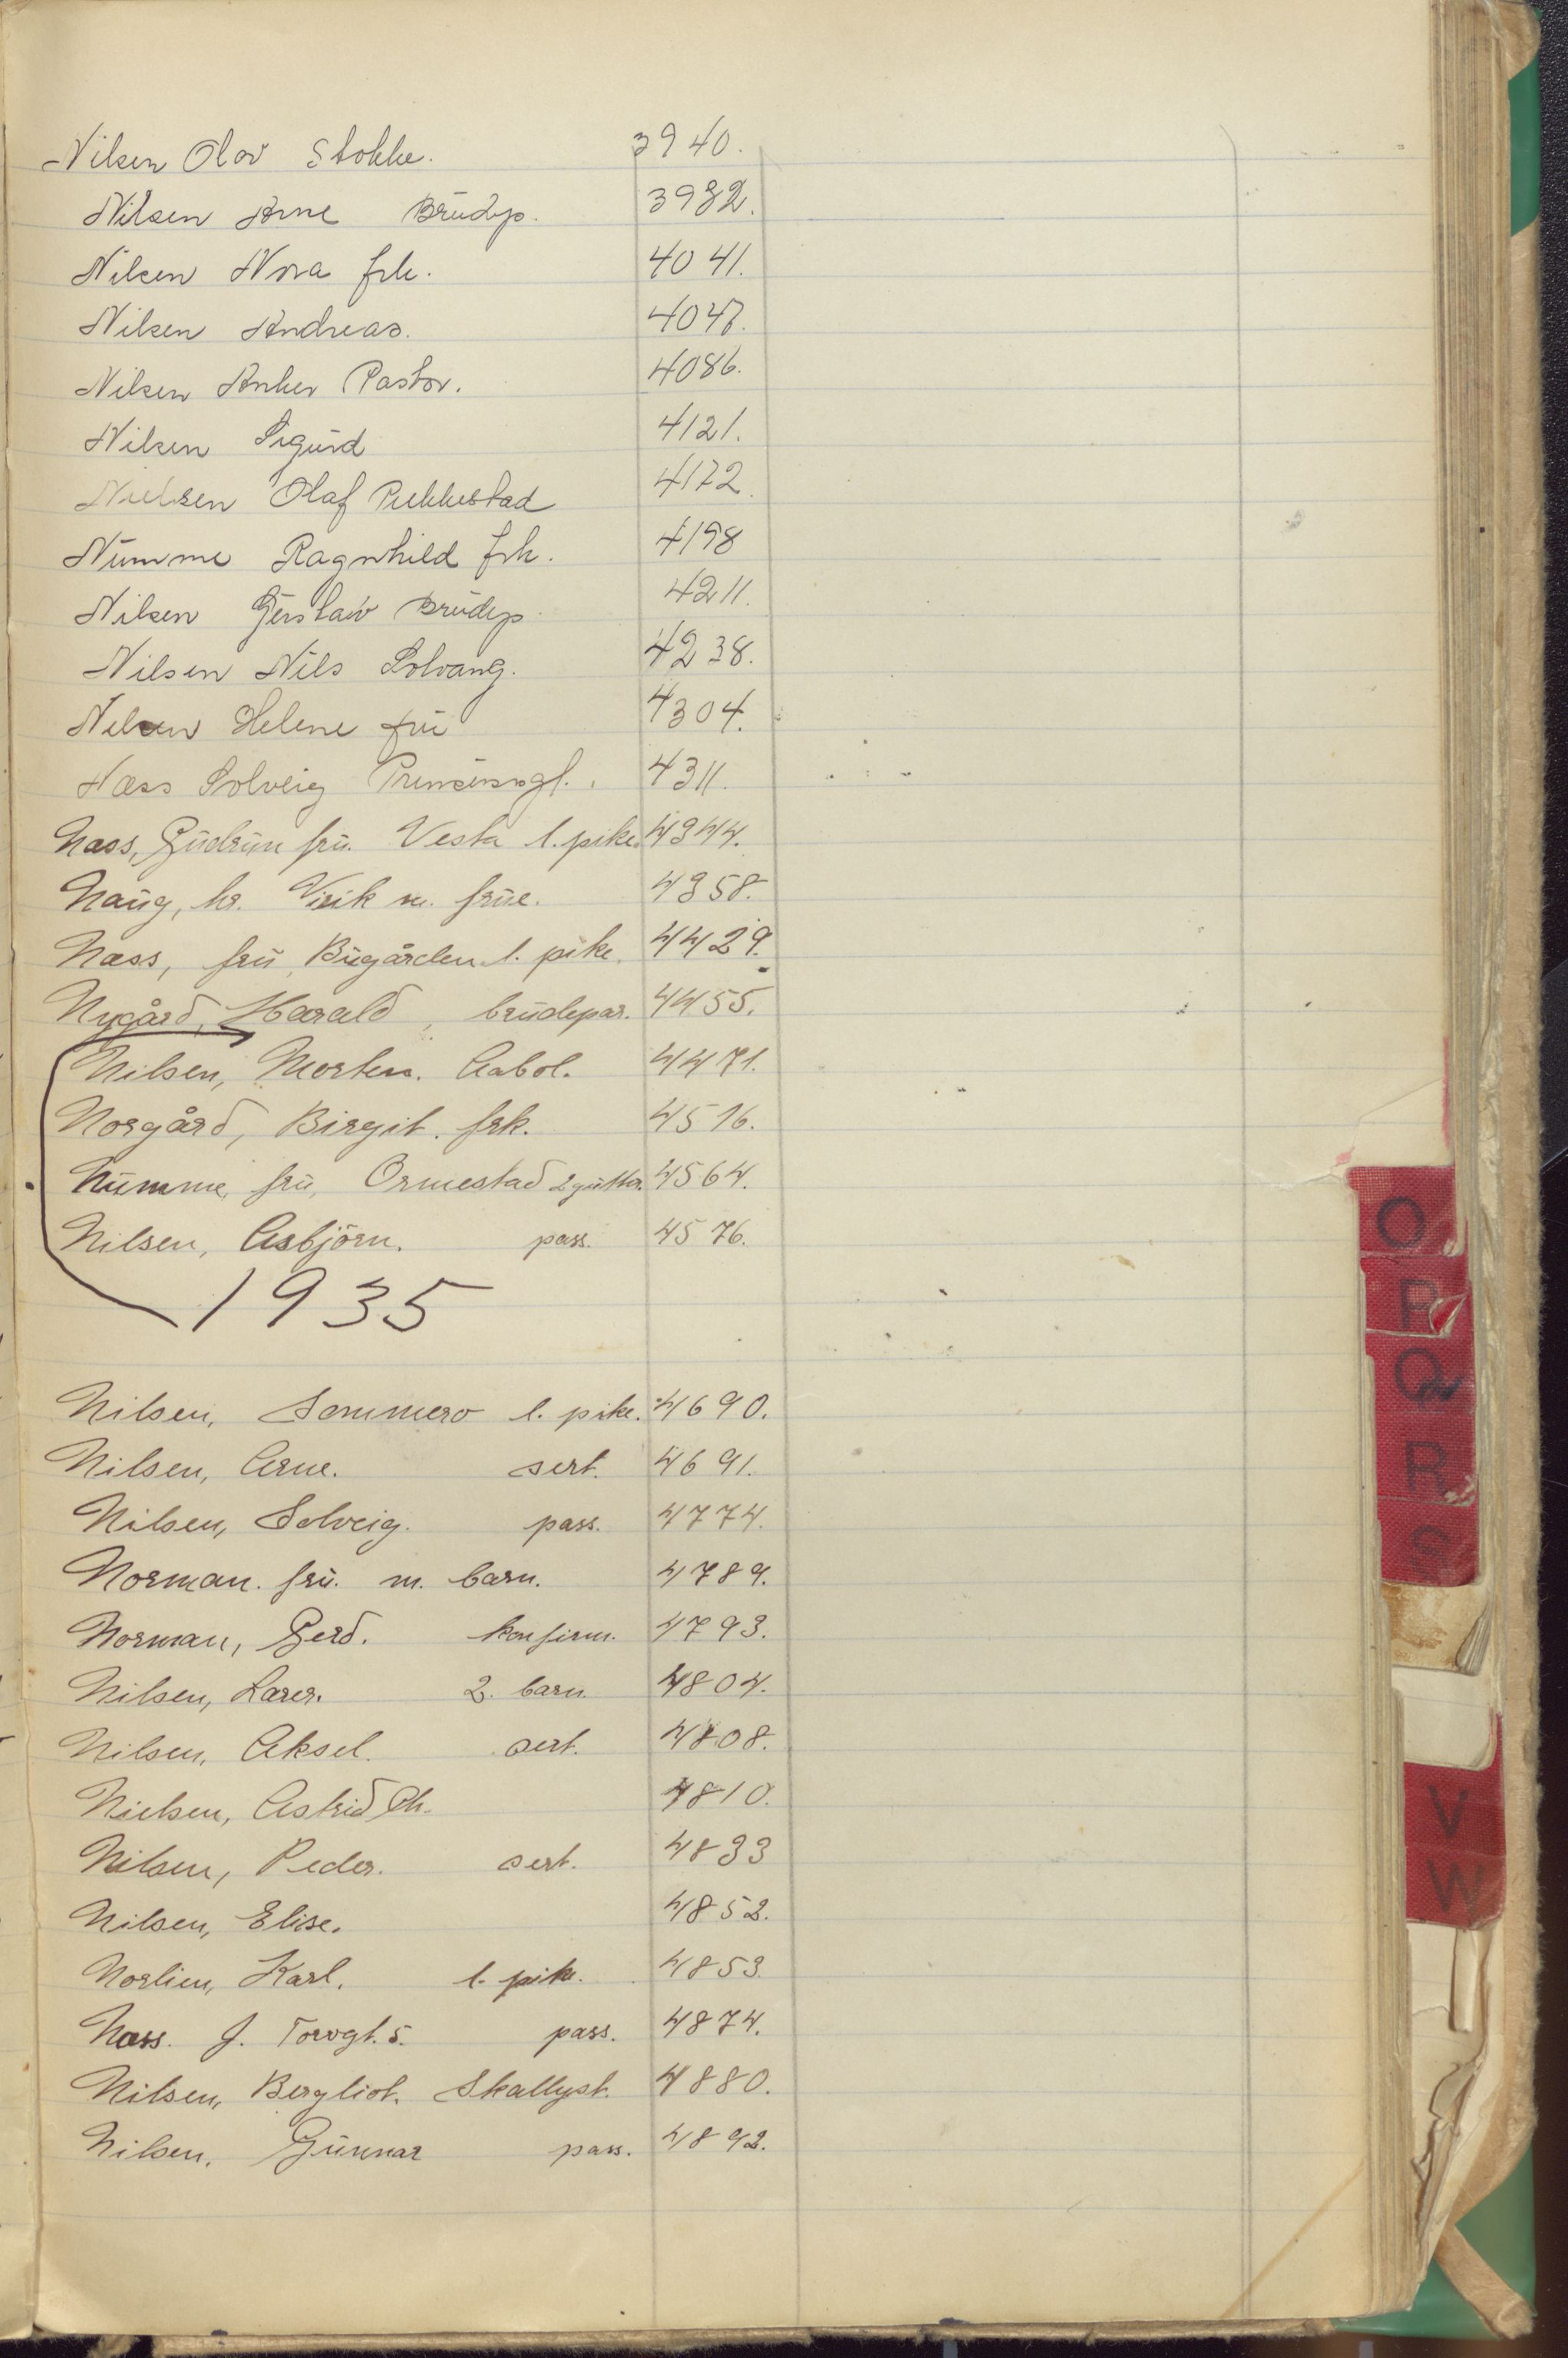 Nilsen Olav Stokke. 3940.
Nilsen Arne Brudep. 3982.
Nilsen Nora frk. 4041.
Nilsen Andreas. 4047.
Nilsen Anker Pastor. 4086.
Nilsen Sigurd 4121.
Nielsen Olaf Pukkestad 4172.
Numme Ragnhild frk. 4198
Nilsen Gustav Brudep. 4211.
Nilsen Nils Solvang. 4238.
Nilsen Helene fru 4304.
Næss Solveig Prinsensgt. 4311.
Næss, Gudrun fru. Vesta l. pike. 4344.
Naug, hr. Virik m. frue. 4358.
Næss, fru, Bugården l. pike. 4429.
Nygård, Harald, brudepar. 4455.
Nilsen, Morten. Aabol. 4471.
Norgård, Birgit. frk. 4516.
Numme, fru, Ormestad 2 gutter. 4564.
Nilsen, Asbjörn. pass. 4576.
1935
Nilsen, Sommero l. pike. 4690.
Nilsen, Arne. sert. 4691.
Nilsen, Solveig. pass. 4774.
Norman. fru. m. barn. 4789.
Norman, Gerd. konfirm. 4793.
Nilsen, Lærer. 2. barn. 4804.
Nilsen, Aksel. sert. 4808.
Nielsen, Astrid Ch. 4810.
Nilsen, Peder. sert. 4833
Nilsen, Elise. 4852.
Norlien, Karl. l. pike. 4853.
Næss. J. Torvgt. 5. pass. 4874.
Nilsen, Bergliot. Skallyst. 4880.
Nilsen, Gunnar pass. 4892.
O
P
Q
R
S
V
W